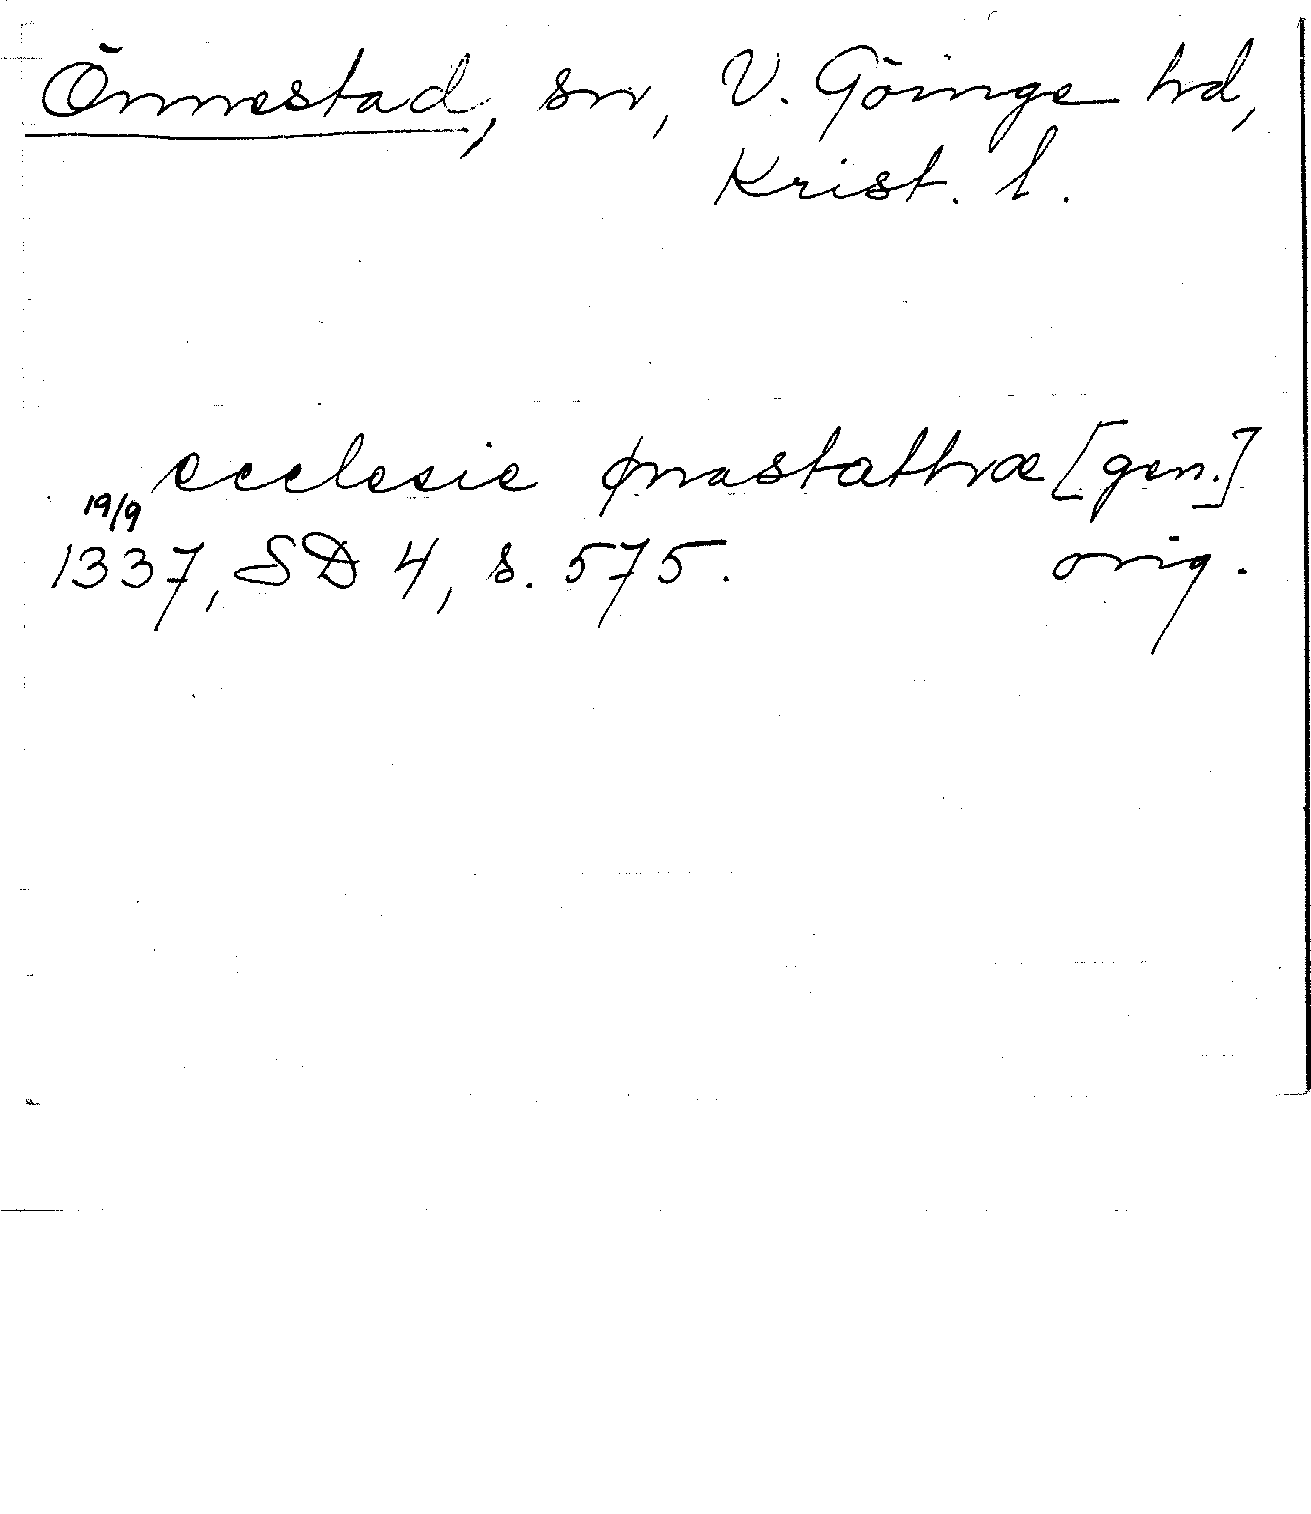 Önnestad, sn, V. Göinge hd,
Krist. l.
ecclesie ønastathæ [gen.]
19/9
1337, SD 4, s. 575. orig.